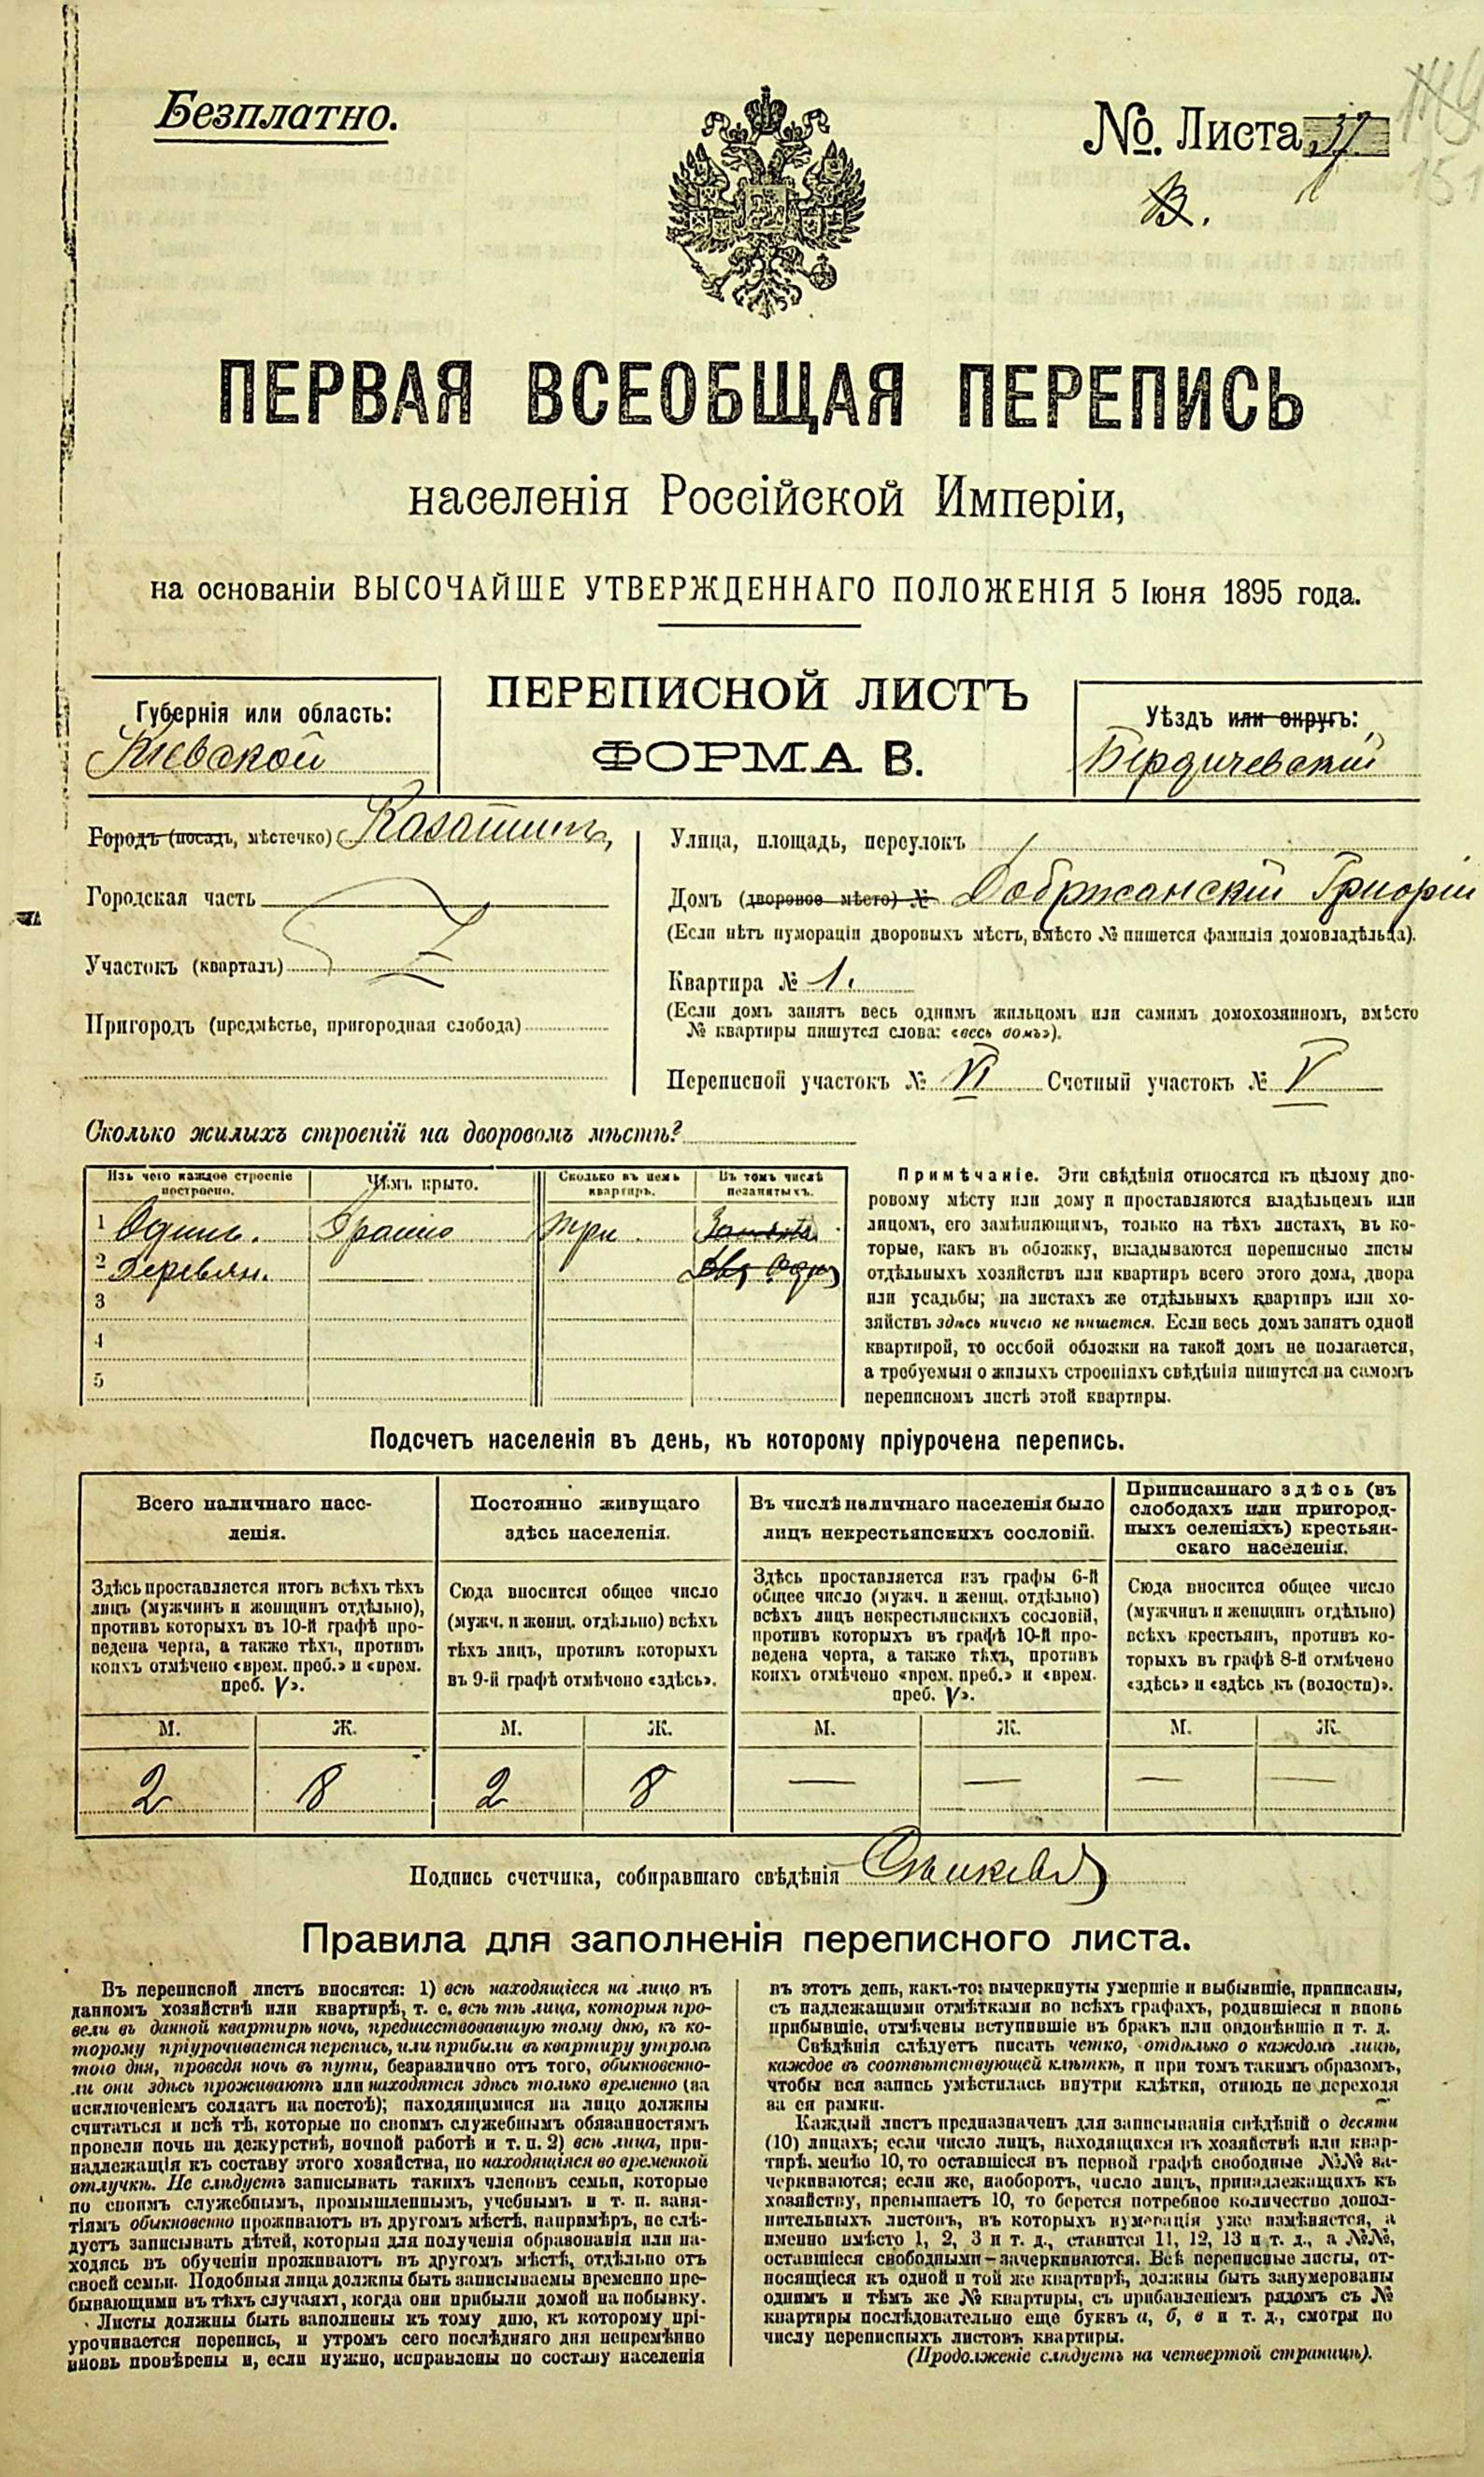 Безплатно.
№. Листа 37
В.
ПЕРВАЯ ВСЕОБЩАЯ ПЕРЕПИСЬ
населенія Россійской Имперіи,
на основаніи ВЫСОЧАЙШЕ УТВЕРЖДЕННАГО ПОЛОЖЕНІЯ 5 Іюня 1895 года.
ПЕРЕПИСНОЙ ЛИСТЪ
ФОРМА В.
Губернія или область:
Кіевской
Уѣздъ или округъ:
Бердичевскій
Городъ (посадъ, мѣстечко) Казатинъ,
Городская часть
Участокъ (кварталъ)
Пригородъ (предмѣстье, пригородная слобода)
Улица, площадь, переулокъ
Домъ (дворовое мѣсто) № Добржанскій Григорій
(Если нѣтъ нумераціи дворовыхъ мѣстъ, вмѣсто № пишется фамилія домовладѣльца).
Квартира № 1.
(Если домъ занятъ весь однимъ жильцомъ или самимъ домохозяиномъ, вмѣсто
№ квартиры пишутся слова: «весь домъ»).
Переписной участокъ № VI Счетный участокъ № V
Сколько жилыхъ строеній на дворовомъ мѣстѣ?
Изъ чего каждое строеніе
построено.
Чѣмъ крыто.
Сколько въ немъ
квартиръ.
Въ томъ числѣ
незанятыхъ.
1 Одинъ. три
2 Деревян.
3
4
5
Примѣчаніе. Эти свѣдѣнія относятся къ цѣлому дво-
ровому мѣсту или дому и проставляются владѣльцемъ или
лицомъ, его замѣняющимъ, только на тѣхъ листахъ, въ ко-
торые, какъ въ обложку, вкладываются переписные листы
отдѣльныхъ хозяйствъ или квартиръ всего этого дома, двора
или усадьбы; на листахъ же отдѣльныхъ квартиръ или хо-
зяйствъ здѣсь ничего не пишется. Если весь домъ занятъ одной
квартирой, то особой обложки на такой домъ не полагается,
а требуемыя о жилыхъ строеніяхъ свѣдѣнія пишутся на самомъ
переписномъ листѣ этой квартиры.
Подсчетъ населенія въ день, къ которому пріурочена перепись.
Всего наличнаго насе-
ленія.
Здѣсь проставляется итогъ всѣхъ тѣхъ
лицъ (мужчинъ и женщинъ отдѣльно),
противъ которыхъ въ 10-й графѣ про-
ведена черта, а также тѣхъ, противъ
коихъ отмѣчено «врем. преб.» и «врем.
преб. V».
Постоянно живущаго
здѣсь населенія.
Сюда вносится общее число
(мужч. и женщ. отдѣльно) всѣхъ
тѣхъ лицъ, противъ которыхъ
въ 9-й графѣ отмѣчено «здѣсь».
Въ числѣ наличнаго населенія было
лицъ некрестьянскихъ сословій.
Здѣсь проставляется изъ графы 6-й
общее число (мужч. и женщ. отдѣльно)
всѣхъ лицъ некрестьянскихъ сословій,
противъ которыхъ въ графѣ 10-й про-
ведена черта, а также тѣхъ, противъ
коихъ отмѣчено «врем. преб.» и «врем.
преб. V».
Приписаннаго здѣсь (въ
слободахъ или пригород-
ныхъ селеніяхъ) крестьян-
скаго населенія.
Сюда вносится общее число
(мужчинъ и женщинъ отдѣльно)
всѣхъ крестьянъ, противъ ко-
торыхъ въ графѣ 8-й отмѣчено
«здѣсь» и «здѣсь къ (волости)».
М. Ж. М. Ж. М. Ж. М. Ж.
2 8 2 8 — — — —
Подпись счетчика, собиравшаго свѣдѣнія
Правила для заполненія переписного листа.
Въ переписной листъ вносятся: 1) всѣ находящіеся на лицо въ
данномъ хозяйствѣ или квартирѣ, т. е. всѣ тѣ лица, которыя про-
вели въ данной квартирѣ ночь, предшествовавшую тому дню, къ ко-
торому пріурочивается перепись, или прибыли въ квартиру утромъ
того дня, проведя ночь въ пути, безразлично отъ того, обыкновенно-
ли они здѣсь проживаютъ или находятся здѣсь только временно (за
исключеніемъ солдатъ на постоѣ); находящимися на лицо должны
считаться и всѣ тѣ, которые по своимъ служебнымъ обязанностямъ
провели ночь на дежурствѣ, ночной работѣ и т. п. 2) всѣ лица, при-
надлежащія къ составу этого хозяйства, но находящіяся во временной
отлучкѣ. Не слѣдуетъ записывать такихъ членовъ семьи, которые
по своимъ служебнымъ, промышленнымъ, учебнымъ и т. п. заня-
тіямъ обыкновенно проживаютъ въ другомъ мѣстѣ, напримѣръ, не слѣ-
дуетъ записывать дѣтей, которыя для полученія образованія или на-
ходясь въ обученіи проживаютъ въ другомъ мѣстѣ, отдѣльно отъ
своей семьи. Подобныя лица должны быть записываемы временно пре-
бывающими въ тѣхъ случаяхъ, когда они прибыли домой на побывку.
Листы должны быть заполнены къ тому дню, къ которому прі-
урочивается перепись, и утромъ сего послѣдняго дня непремѣнно
вновь провѣрены и, если нужно, исправлены по составу населенія
въ этотъ день, какъ-то: вычеркнуты умершіе и выбывшіе, приписаны,
съ надлежащими отмѣтками во всѣхъ графахъ, родившіеся и вновь
прибывшіе, отмѣчены вступившіе въ бракъ или овдовѣвшіе и т. д.
Свѣдѣнія слѣдуетъ писать четко, отдѣльно о каждомъ лицѣ,
каждое въ соотвѣтствующей клѣткѣ, и при томъ такимъ образомъ,
чтобы вся запись умѣстилась внутри клѣтки, отнюдь не переходя
за ея рамки.
Каждый листъ предназначенъ для записыванія свѣдѣній о десяти
(10) лицахъ; если число лицъ, находящихся въ хозяйствѣ или квар-
тирѣ, менѣе 10, то оставшіеся въ первой графѣ свободные №№ за-
черкиваются; если же, наоборотъ, число лицъ, принадлежащихъ къ
хозяйству, превышаетъ 10, то берется потребное количество допол-
нительныхъ листовъ, въ которыхъ нумерація уже измѣняется, а
именно вмѣсто 1, 2, 3 и т. д., ставится 11, 12, 13 и т. д., а №№,
оставшіеся свободными—зачеркиваются. Всѣ переписные листы, от-
носящіеся къ одной и той же квартирѣ, должны быть занумерованы
однимъ и тѣмъ же № квартиры, съ прибавленіемъ рядомъ съ №
квартиры послѣдовательно еще буквъ а, б, в и т. д., смотря по
числу переписныхъ листовъ квартиры.
(Продолженіе слѣдуетъ на четвертой страницѣ).